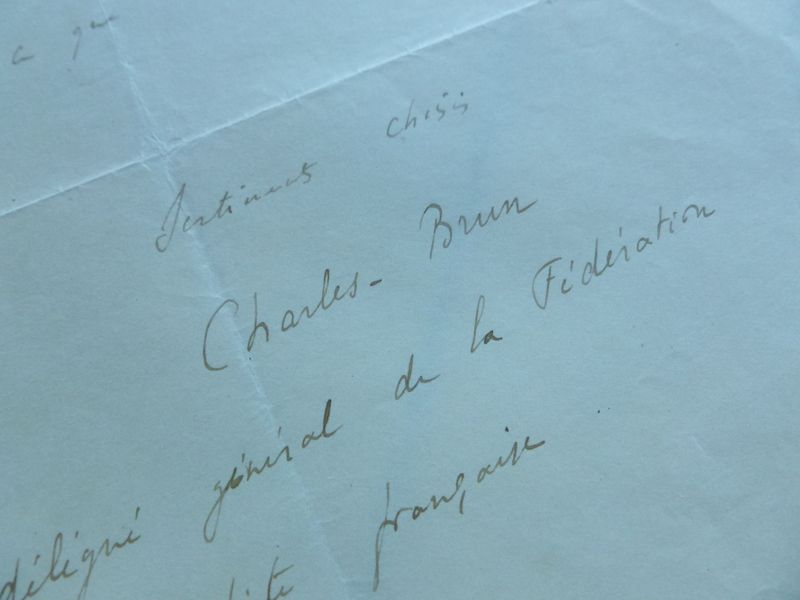 a que
Sentiments choisis
Charles-Brun
délégué général de la Fédération
française